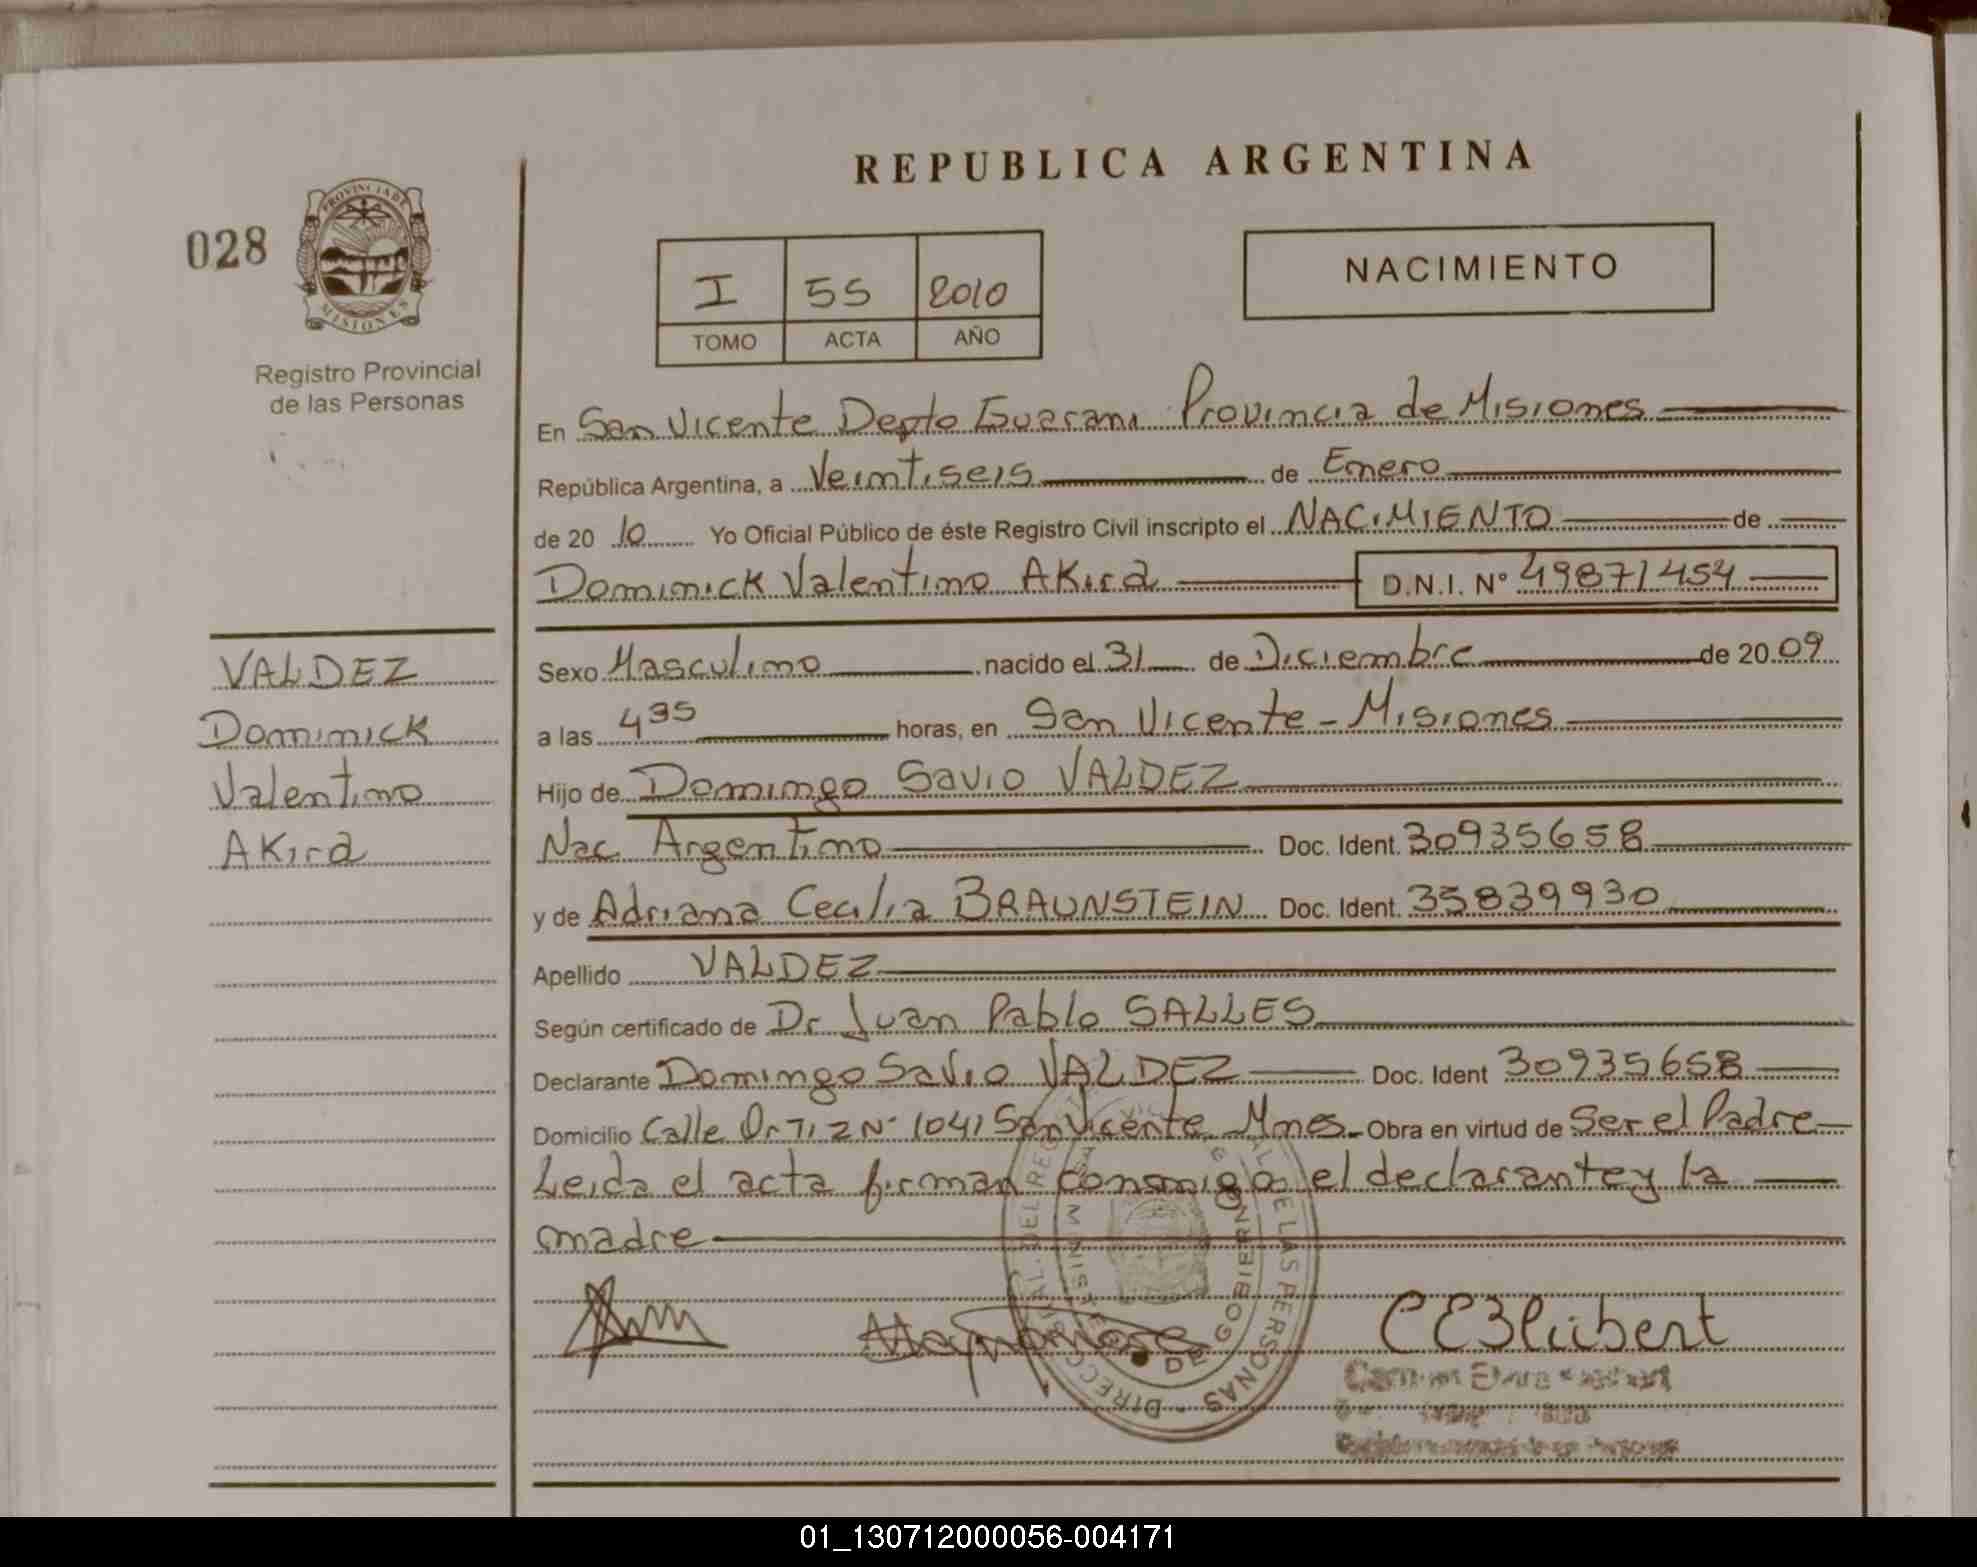 REPUBLICA ARGENTINA
028
PROVINCIA DE
MISIONES
Registro Provincial
de las Personas
I 55 2010
TOMO ACTA AÑO
NACIMIENTO
En San Vicente Depto Guarani Provincia de Misiones
República Argentina, a Veintiseis de Enero
de 20 10 Yo Oficial Público de éste Registro Civil inscripto el NACIMIENTO de
Dominick Valentino Akira D.N.I. Nº 49871454
VALDEZ
Dominick
Valentino
Akira
Sexo Masculino nacido el 31 de Diciembre de 20 09
a las 4 35 horas, en San Vicente - Misiones
Hijo de Domingo Savio VALDEZ
Nac. Argentino Doc. Ident. 30935658
y de Adriana Cecilia BRAUNSTEIN Doc. Ident. 35839930
Apellido VALDEZ
Según certificado de Dr Juan Pablo SALLES
Declarante Domingo Savio VALDEZ Doc. Ident 30935658
Domicilio Calle Ortiz Nº 1041 San Vicente Mnes- Obra en virtud de Ser el Padre
Leida el acta firman conmigo el declarante y la
madre
DE GOBIERNO
DE LAS PERSONAS
01_130712000056-004171